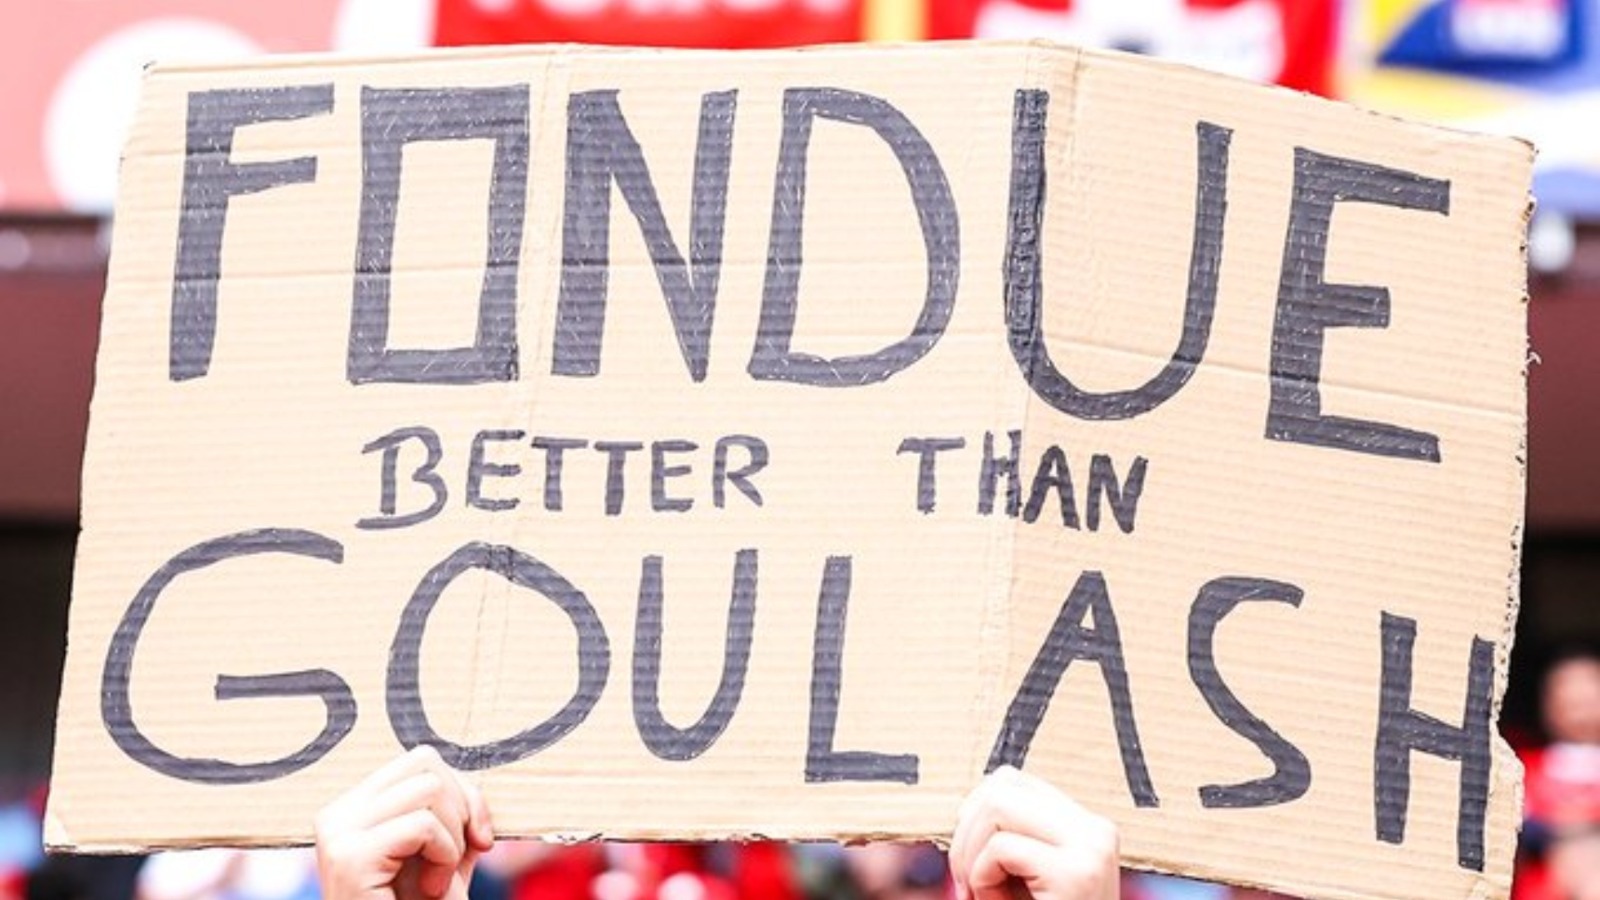 FONDUE
BETTER THAN
GOULASH